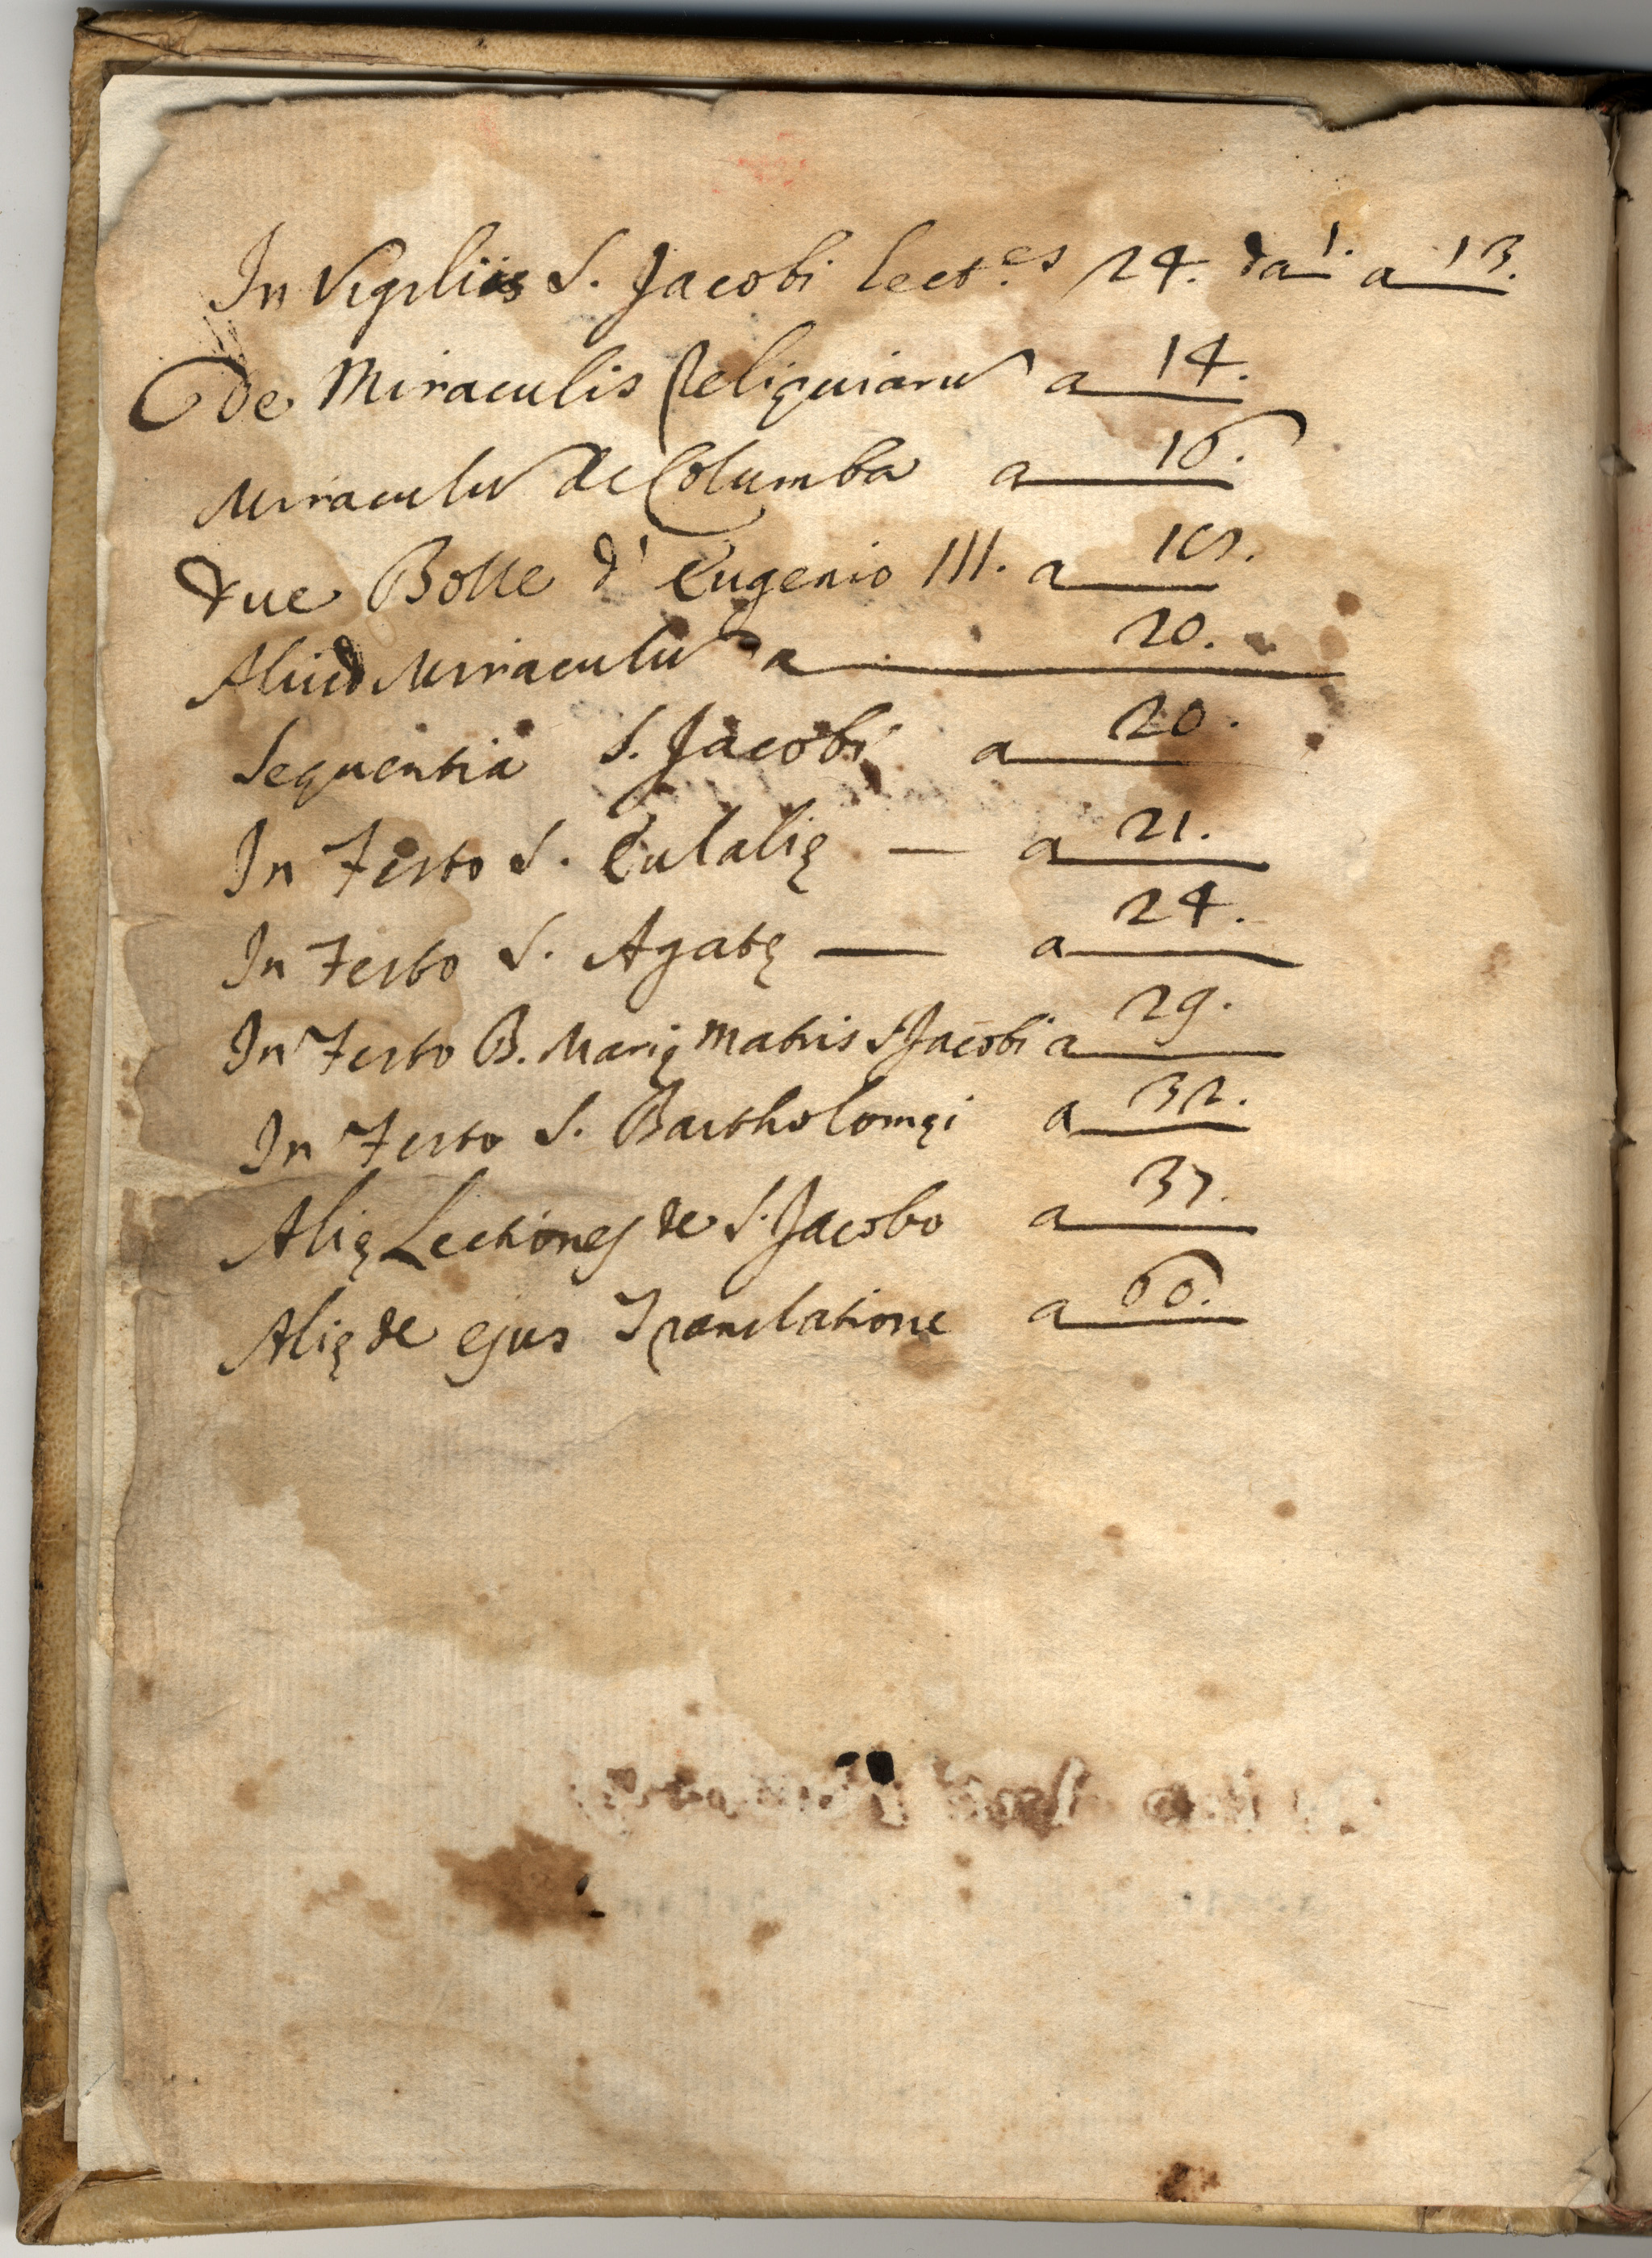 In Vigiliis S. Jacobi lect.es 24. da 1. a 13.
De Miraculis Reliquiarū a 14.
Miraculū de Columba a 16.
due Bolle d' Eugenio III. a
Aliud Miraculū a 20.
Sequentia S. Jacobi a 20.
In Festo S. Eulalię — a 21.
In Festo S. Agatę — a 24.
In Festo B. Marię Matris S. Jacobi a 29.
In Festo S. Bartholomęi a 32.
Alię Lectiones de S. Jacobo a 37.
Alię de ejus Translatione a 60.